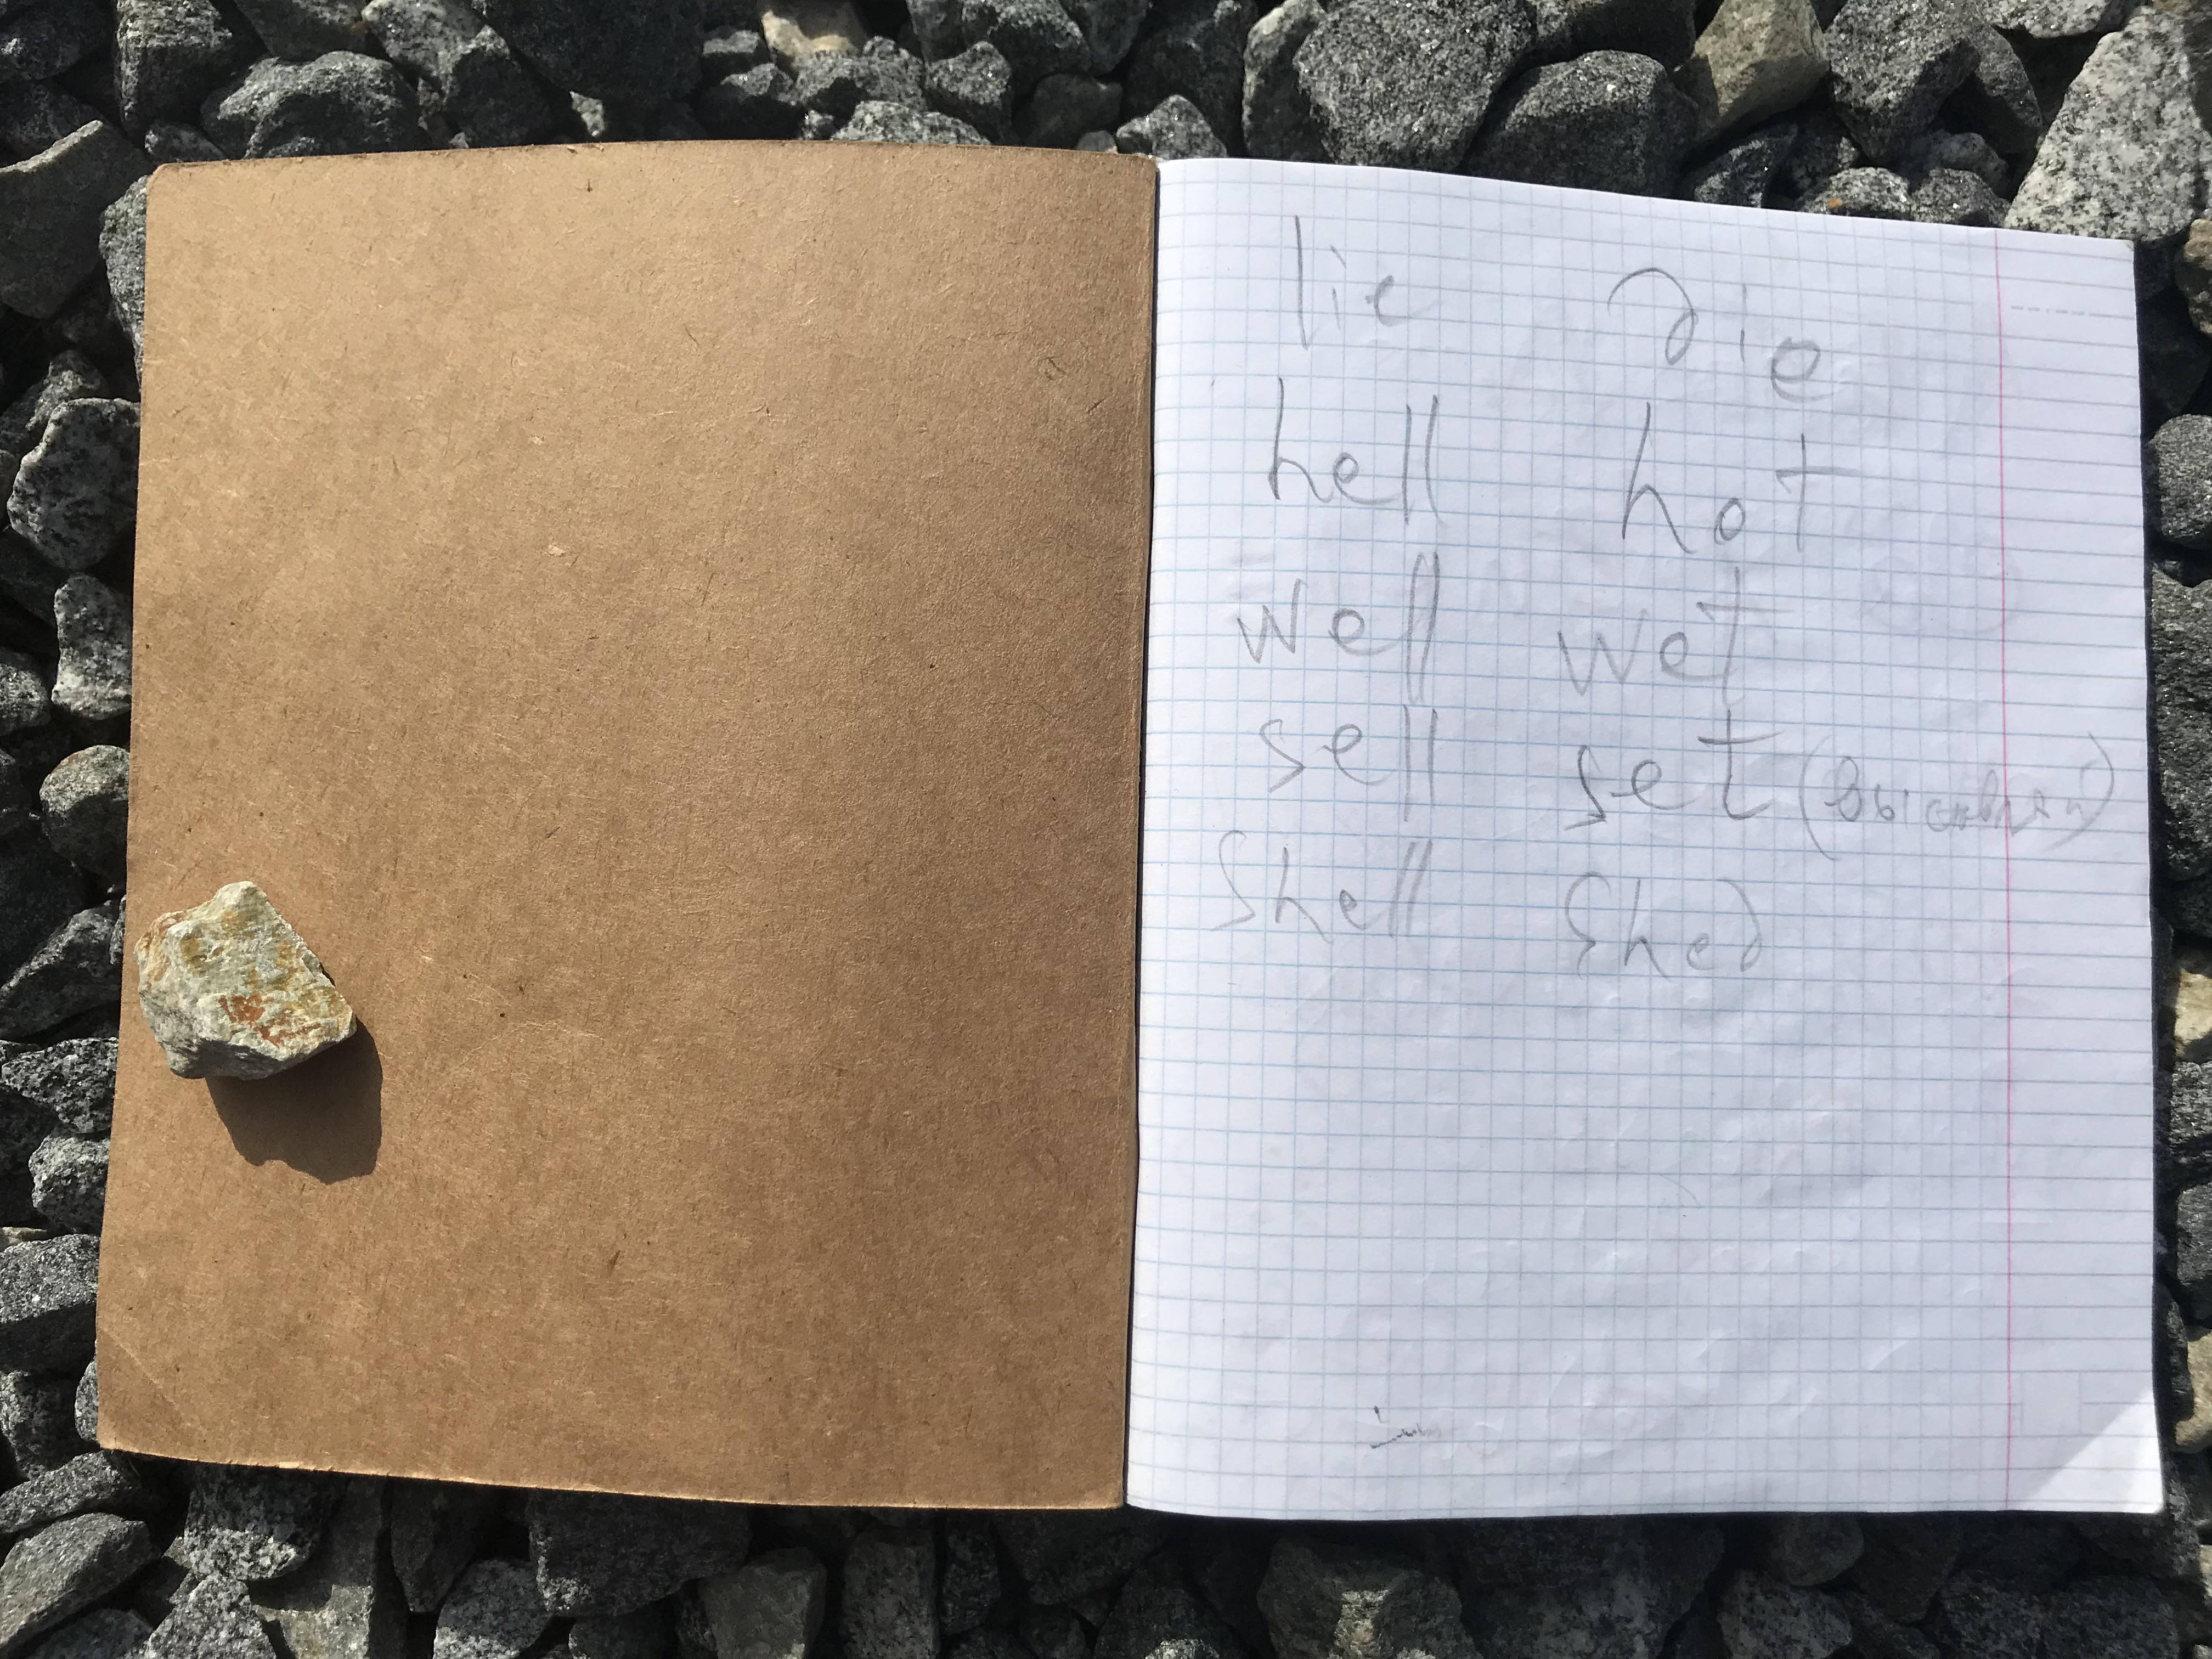 lie die
hell hot
well wet
sell set
shell shed